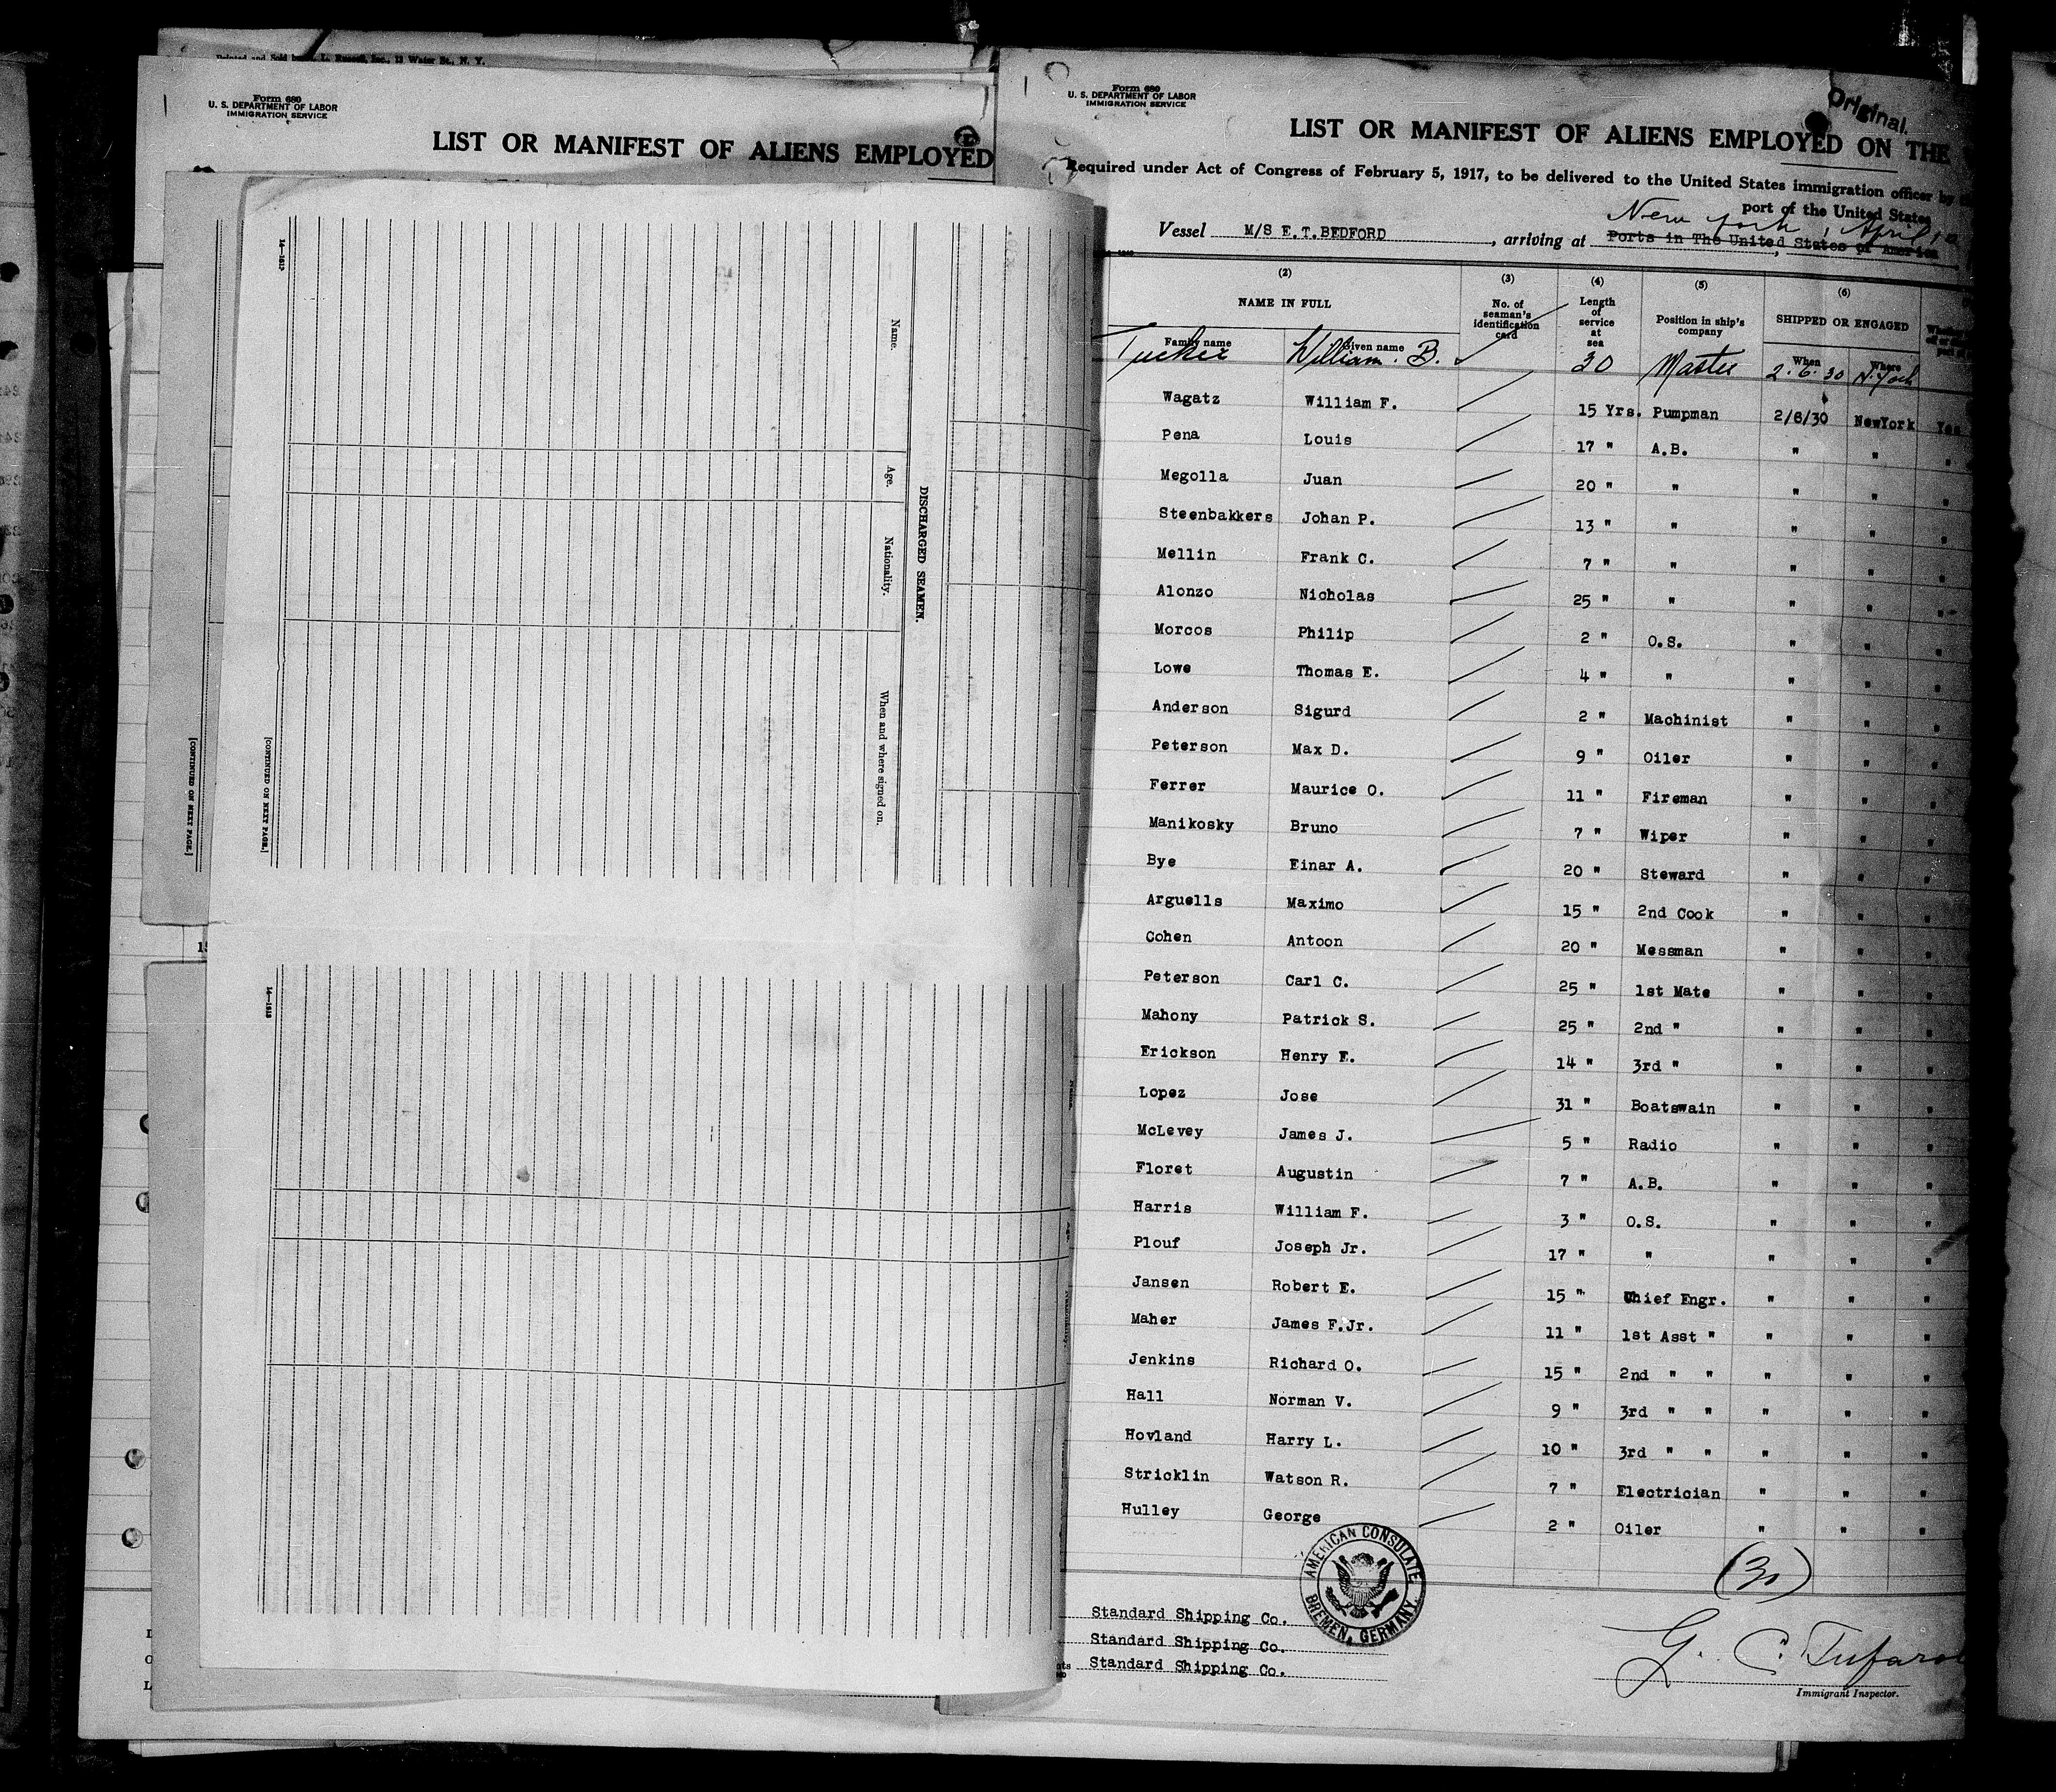 Printed and Sold by L. Russell, Inc., 13 Water St., N. Y.
Form 680
U. S. DEPARTMENT OF LABOR
IMMIGRATION SERVICE
LIST OR MANIFEST OF ALIENS EMPLOYED
14—1613
Name.
Age.
Nationality.
When and where signed on.
DISCHARGED SEAMEN.
[CONTINUED ON NEXT PAGE.]
[CONTINUED ON NEXT PAGE.]
14—1613
Form 680
U. S. DEPARTMENT OF LABOR
IMMIGRATION SERVICE
Original.
LIST OR MANIFEST OF ALIENS EMPLOYED ON THE
Required under Act of Congress of February 5, 1917, to be delivered to the United States immigration officer by
port of the United States
New York, April 10
Vessel M/S E.T.BEDFORD, arriving at Ports in The United States of America
(2) (3) (4) (5) (6)
NAME IN FULL No. of seaman's identification card Length of service at sea Position in ship's company SHIPPED OR ENGAGED
Family name Given name When Where
Tucker William. B. 30 Master 2.6.30 N.York
Wagatz William F. 15 Yrs. Pumpman 2/6/30 NewYork Yes
Pena Louis 17 " A.B. " " "
Megolla Juan 20 " " " " "
Steenbakkers Johan P. 13 " " " " "
Mellin Frank C. 7 " " " " "
Alonzo Nicholas 25 " " " " "
Morcos Philip 2 " O.S. " " "
Lowe Thomas E. 4 " " " " "
Anderson Sigurd 2 " Machinist " " "
Peterson Max D. 9 " Oiler " " "
Ferrer Maurice O. 11 " Fireman " " "
Manikosky Bruno 7 " Wiper " " "
Bye Einar A. 20 " Steward " " "
Arguells Maximo 15 " 2nd Cook " " "
Cohen Antoon 20 " Messman " " "
Peterson Carl C. 25 " 1st Mate " " "
Mahony Patrick S. 25 " 2nd " " " "
Erickson Henry E. 14 " 3rd " " " "
Lopez Jose 31 " Boatswain " " "
McLevey James J. 5 " Radio " " "
Floret Augustin 7 " A.B. " " "
Harris William F. 3 " O.S. " " "
Plouf Joseph Jr. 17 " " " " "
Jansen Robert E. 15 " Chief Engr. " " "
Maher James F.Jr. 11 " 1st Asst " " " "
Jenkins Richard O. 15 " 2nd " " " " "
Hall Norman V. 9 " 3rd " " " " "
Hovland Harry L. 10 " 3rd " " " " "
Stricklin Watson R. 7 " Electrician " " "
Hulley George 2 " Oiler " " "
AMERICAN CONSULATE
BREMEN, GERMANY.
Standard Shipping Co.
Standard Shipping Co.
Standard Shipping Co.
G. C. Tufaro
Immigrant Inspector.